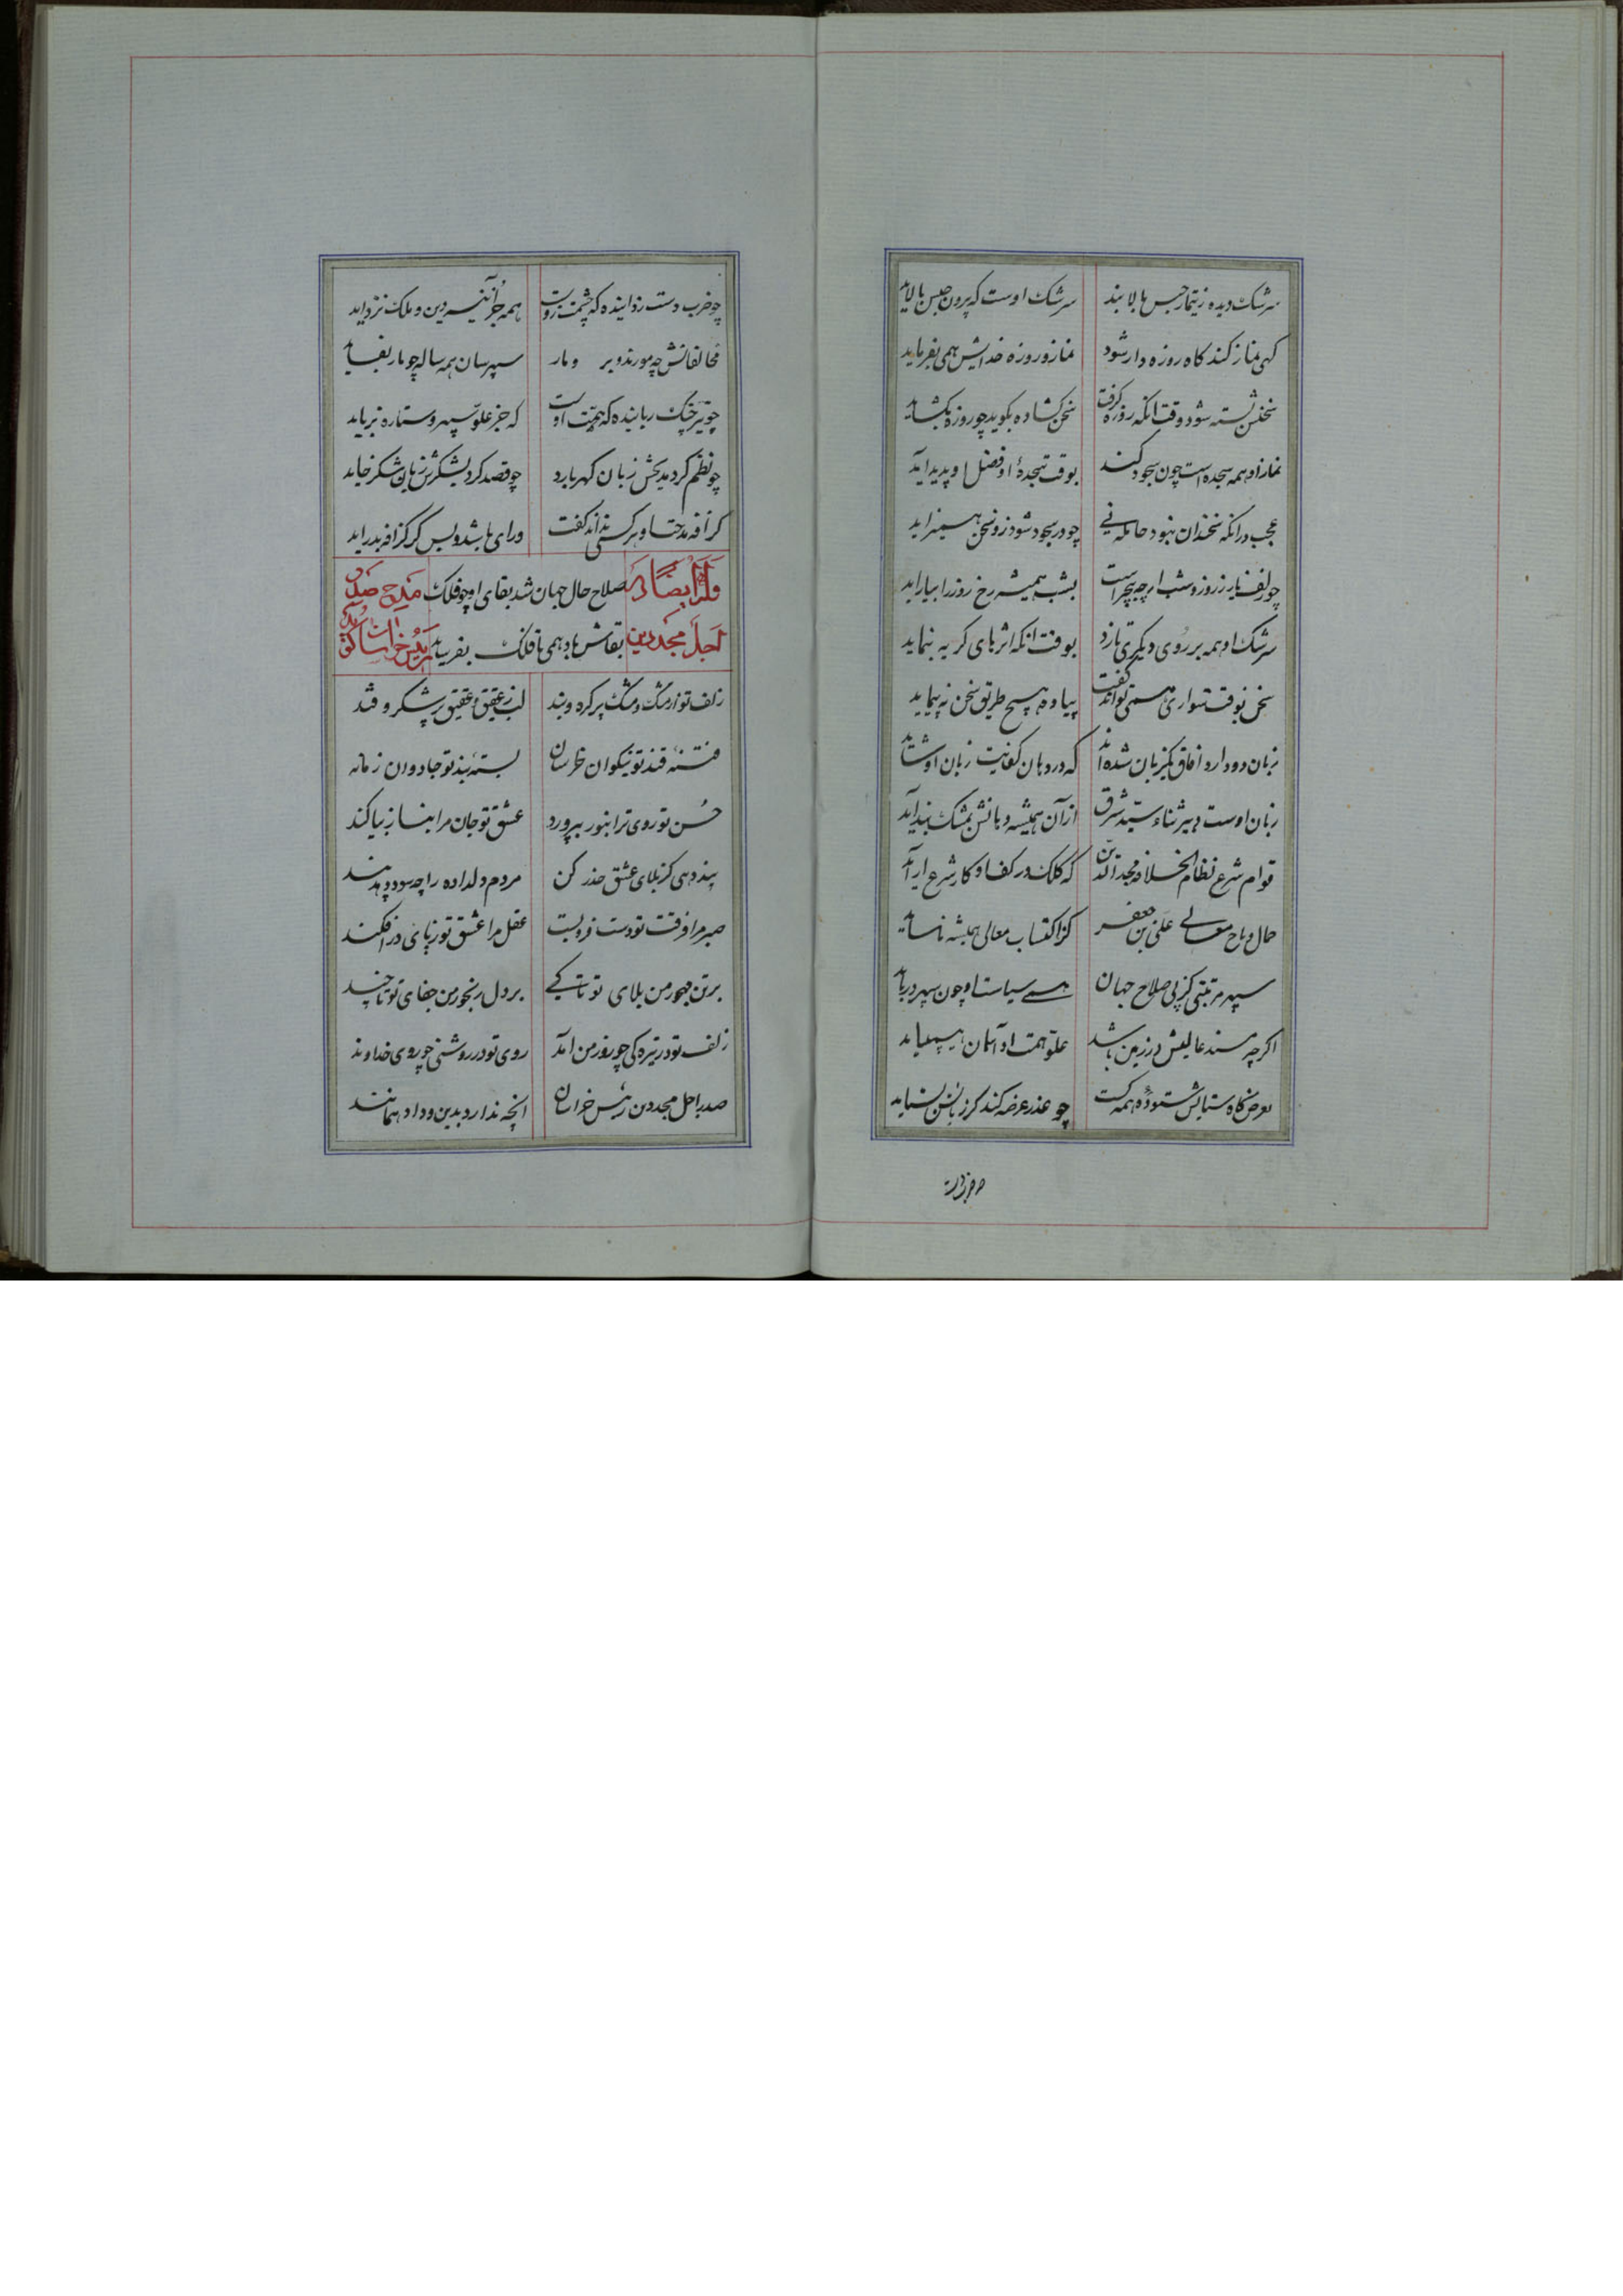 سرشک دیده زتیمار حبس بالایند سرشک اوست که بیرون حبس بالاید
کهی نماز کند کاه روزه دار شود نماز و روزه خدایش همی بفرماید
سخنش بسته شود وقت انکه روزه کرفت سخن کشاده بکوید چو روزه بکشاید
نماز او همه سجده است چون سجود کند بوقت سجدهٔ او فضل او پدید آید
عجب در انکه سخندان نبود خامه نی چو در سجود شود زو سخن همی زاید
چو زلف یار ز روز و شب ار چه بیخبر است بشب همیشه رخ روز را بیاراید
سرشک او همه بر روی دیکری بارد بوقت انکه اثرهای کریه بنماید
سخن بوقت سواری همی تواند کفت پیاده هیچ طریق سخن نه پیماید
زبان دو دارد افاق یکزبان شده اند که در دهان کفایت زبان او شاید
زبان اوست دبیر ثناء سید شرق از آن همیشه دهانش بمشک انداید
قوام شرع نظام الخلافه مجدالدین که کلک در کف او کار شرع را آید
جمال و تاج معالی علی بن جعفر کز اکتساب معالی همیشه ناساید
سپهر مرتبتی کز پی صلاح جهان همی سیاست او چون سپهر درباید
اکرچه مسند عالیش در زمین باشد علو همت او آسمان بپیماید
بعرضکاه ستایش ستودهٔ همه کست چو عذر عرضه کند کر زبانش نستاید
چو ضرب دست
چو ضرب دست زداینده که چشمت زوست همه جز آینه دین و ملک نزداید
مخالفانش چه مورند و بر و مار سپهرسان همه ساله چو مار بفساید
چو تیر چنک رباینده که همت اوست که جز علو سپهر و ستاره نرباید
چو نظم کرد مدیحش زبان کهر بارد چو قصد کرد بشکرش زبان شکر خاید
کزافه مدحت او هر کسی نداند کفت ورای باشد و بس کر کزافه بدراید
وله ایضا در صلاح حال جهان شد بقای او چو فلک مدح صدر
اجل مجددین بقاش باد همی تا فلک بفرساید رییس خراسان کوید
زلف تو از مشک و مشک پر کره و بند لب ز عقیق و عقیق پر شکر و قند
فتنهٔ قند تو نیکوان خراسان بستهٔ بند تو جادوان زمانه
حسن تو روی ترا بنور بپرورد عشق تو جان مرا بنار بیاکند
پند دهی کز بلای عشق حذر کن مردم دلداده را چه سود دهد پند
صبر مرا فرقت تو دست فرو بست عقل مرا عشق تو ز پای درافکند
برتن مهجور من بلای تو تا کی بر دل رنجور من جفای تو تا چند
زلف تو در تیره کی چو روز من آمد روی تو در روشنی چو روی خداوند
صدر اجل مجددین رئیس خراسان انچه ندارد بدین و داد همانند